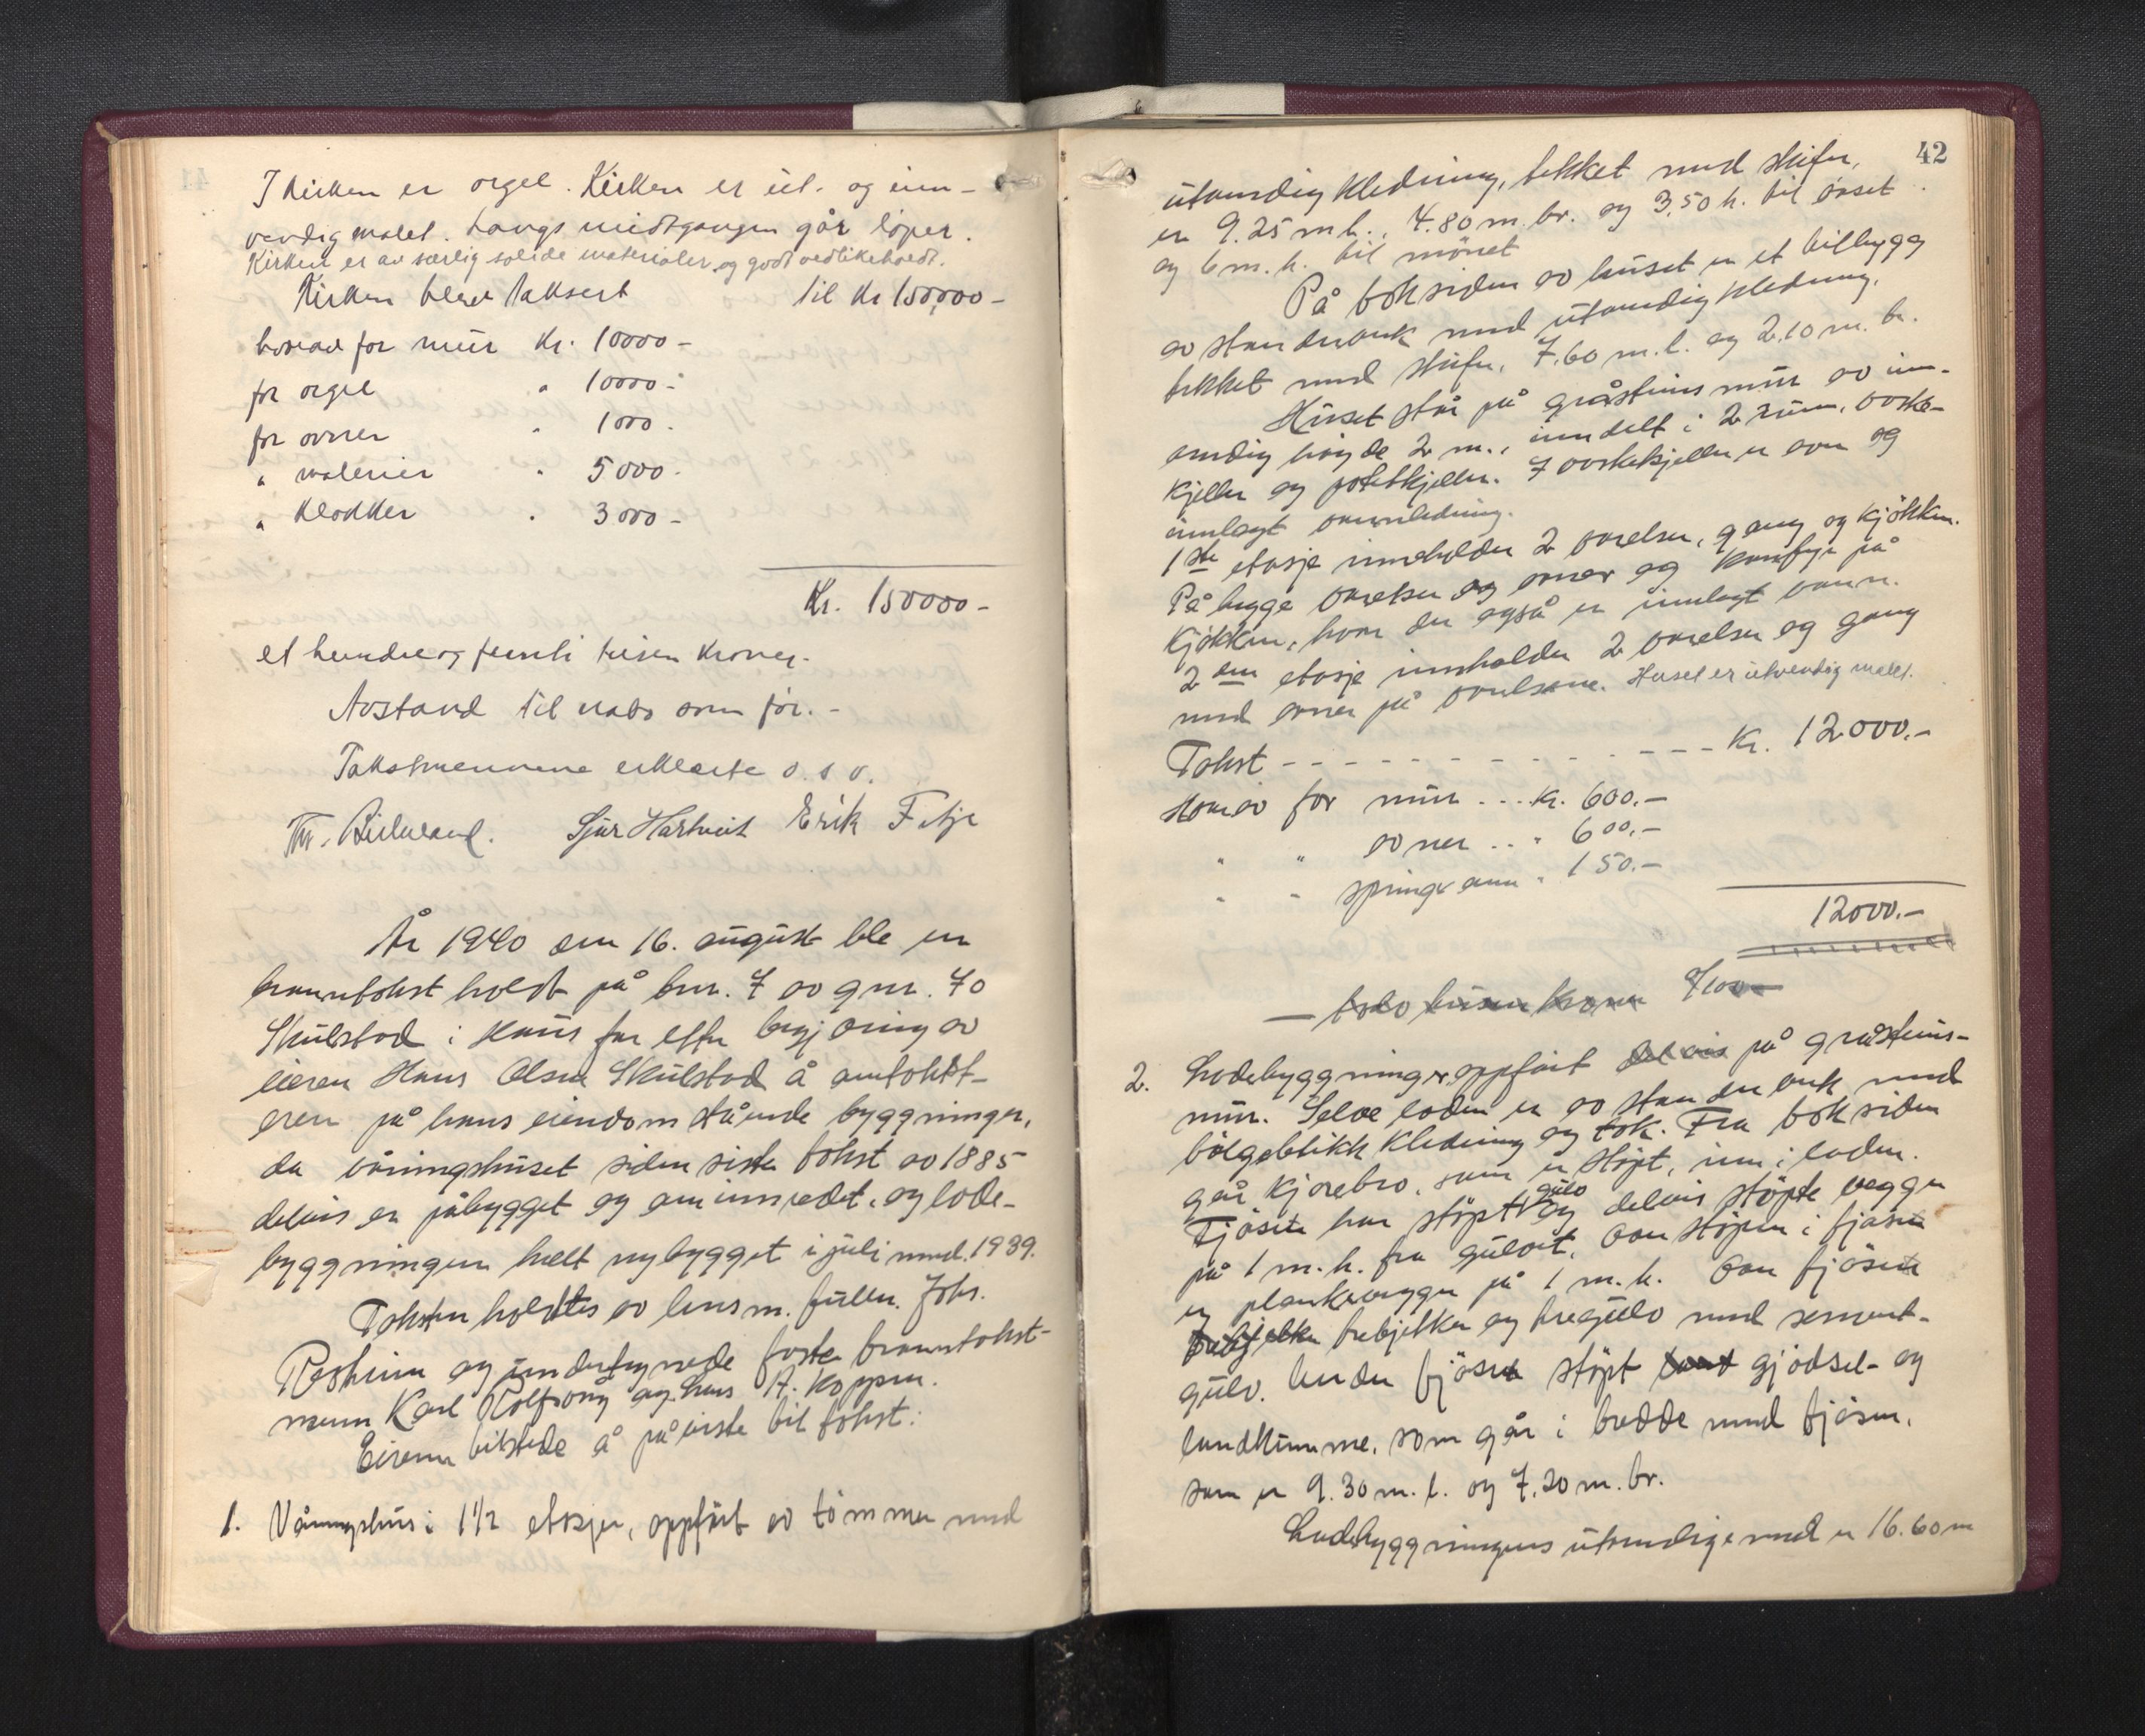 I kirken er orgel. Kirken er ut- og inn-
vendig malet. Langs midtgangen går løper.
Kirken er av særlig solide materialer og godt vedlikeholdt.
Kirken blev taksert til Kr 150000-
hvorav for mur Kr. 10000-
for orgel " 10000-
for ovner " 1000-
" malerier " 5000-
" klokker " 3000-
Kr. 150000-
et hundre og femti tusen kroner.
Avstand til nabo som før. -
Takstmennene erklærte o.s.v.
Sjur Hartveit Erik Fitje
År 1940 den 16. august ble en
branntakst holdt på bnr. 7 av gnr. 70
Skulstad i Haus for efter begjæring av
eieren Hans Olsen Skulstad å omtakst-
eren på hans eiendom stående byggninger,
da våningshuset siden siste takst av 1885
delvis er påbygget og om innredet, og løde-
byggningen helt nybygget i juli mnd. 1939.
Taksten holdtes av lensm. fullm. Johs.
og undertegnede faste branntakst-
menn Karl Rolfsvåg og Lars A. Koppen.
Eieren tilstede å påviste til takst:
1. Våningshus i 1 1/2 etasjer, oppført av tømmer med
42
utvendig kledning, tekket med skifer,
er 9.25 m l., 4.80 m. br. og 3,50 h. til øvset
og 6 m. h. til mønet
På baksiden av huset er et tilbygg
av standverk med utvendig kledning,
tekket med skifer, 7.60 m. l. og 2.10 m. br.
Huset står på gråsteins mur av inn-
vendig høyde 2 m., inndelt i 2 rum, vaske-
kjeller og potetkjeller. I vaskekjeller er ovn og
innlagt vannledning.
1ste etasje inneholder 2 værelser, gang og kjøkken.
På begge værelser er ovner og komfyr på
kjøkken, hvor der også er innlagt vann.
2den etasje inneholder 2 værelser og gang
med ovner på værelsene. Huset er utvendig malt.
Takst - - - - - - - - - - - Kr. 12000.-
Hvorav for mur ... Kr. 600.-
" " ovner .. " 600.-
" " springvann " 150.-
12000.-
- tolv tusen kroner 0/100 -
2. Lødebyggning, oppført delvis på gråsteins-
mur. Selve løden er av standverk med
bølgeblikk kledning og tak. Fra baksiden
går kjørebro, som er støpt, inn i løden.
Fjøset har støpt gulv og delvis støpte vegger
på 1 m. h. fra gulvet. Over støpen i fjøset
er plankevegger på 1 m. h. Over fjøset
trebjelker trebjelker og tregulv med sement-
gulv. Under fjøset støpt gjødsel- og
landkumme, som går i bredde med fjøset,
som er 9.30 m. l. og 7.20 m. br.
Lødebyggningens utvendige mål er 16.60 m